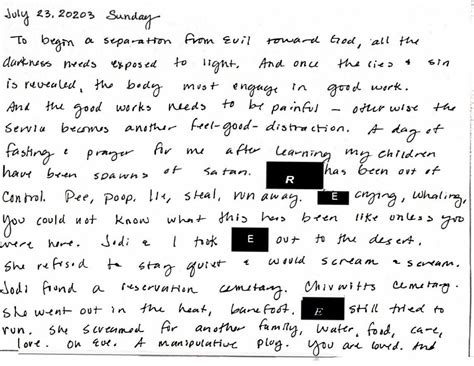 July 23, 20203 Sunday
To begin a separation from Evil toward God, all the
darkness needs exposed to light. And once the lies & sin
is revealed, the body must engage in good work.
And the good works needs to be painful – otherwise the
service becomes another feel-good-distraction. A day of
fasting & prayer for me after learning my children
have been spawns of Satan. R has been out of
control. Pee, poop, lie, steal, run away. E crying, whaling,
you could not know what this has been like unless you
were here. Jodi & I took E out to the desert.
She refused to stay quiet & would scream & scream.
Jodi found a reservation cemetary. Chivwitts cemetary.
She went out in the heat, barefoot. E still tried to
run. She screamed for another family, water, food, care,
love. On Eve. A manipulative plug. You are loved. And